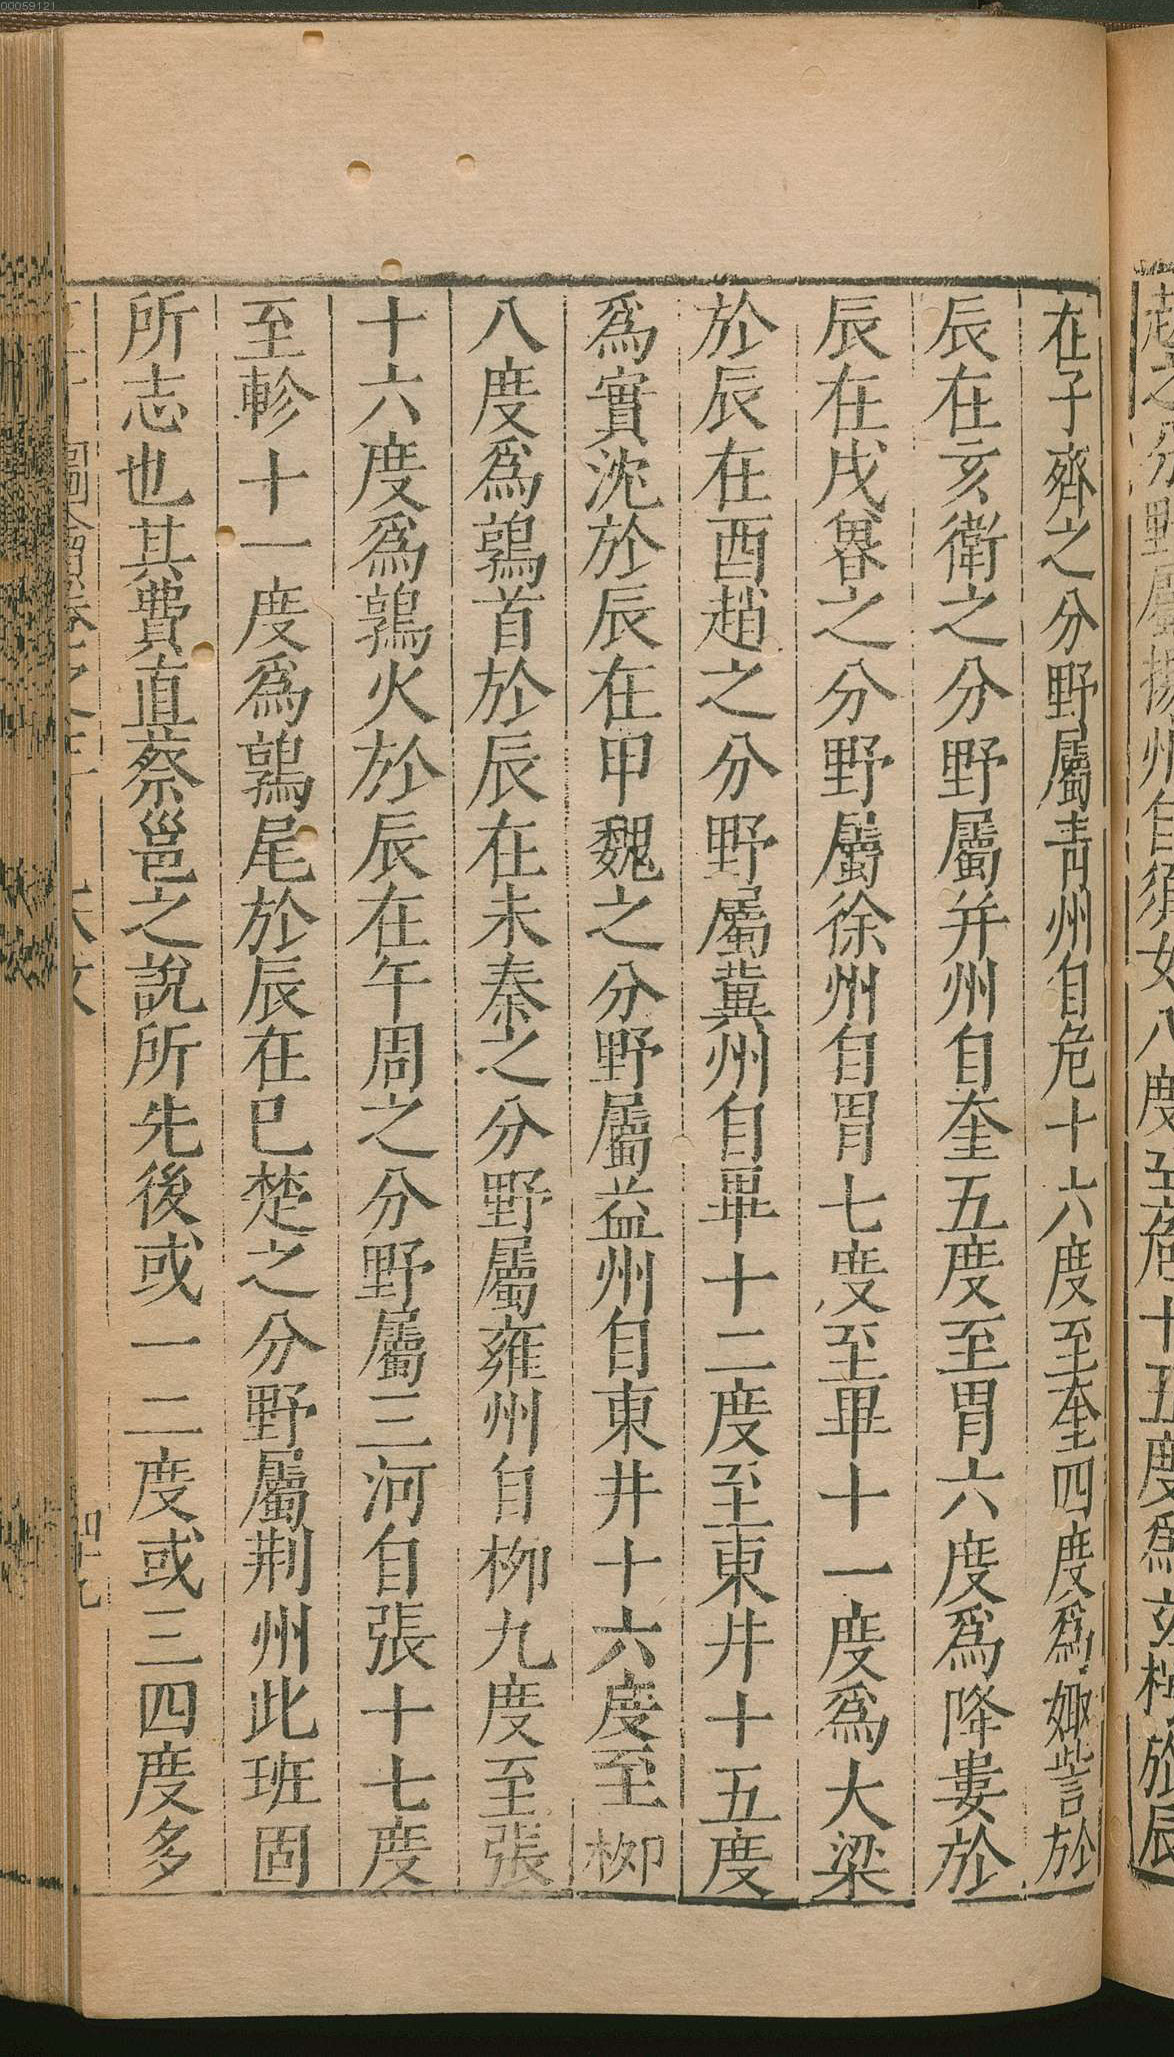 00059121
趙之分野屬揚州自須女八度至危十五度爲玄枵於辰
在子齊之分野屬靑州自危十六度至奎四度爲娵訾於
辰在亥衛之分野屬并州自奎五度至胃六度爲降婁於
辰在戌魯之分野屬徐州自胃七度至畢十一度爲大梁
於辰在酉趙之分野屬冀州自畢十二度至東井十五度
爲實沈於辰在甲魏之分野屬益州自東井十六度至栁
八度爲鶉首於辰在未秦之分野屬雍州自栁九度至張
十六度爲鶉火於辰在午周之分野屬三河自張十七度
至軫十一度爲鶉尾於辰在巳楚之分野屬荆州此班固
所志也其費直蔡邕之說所先後或一二度或三四度多